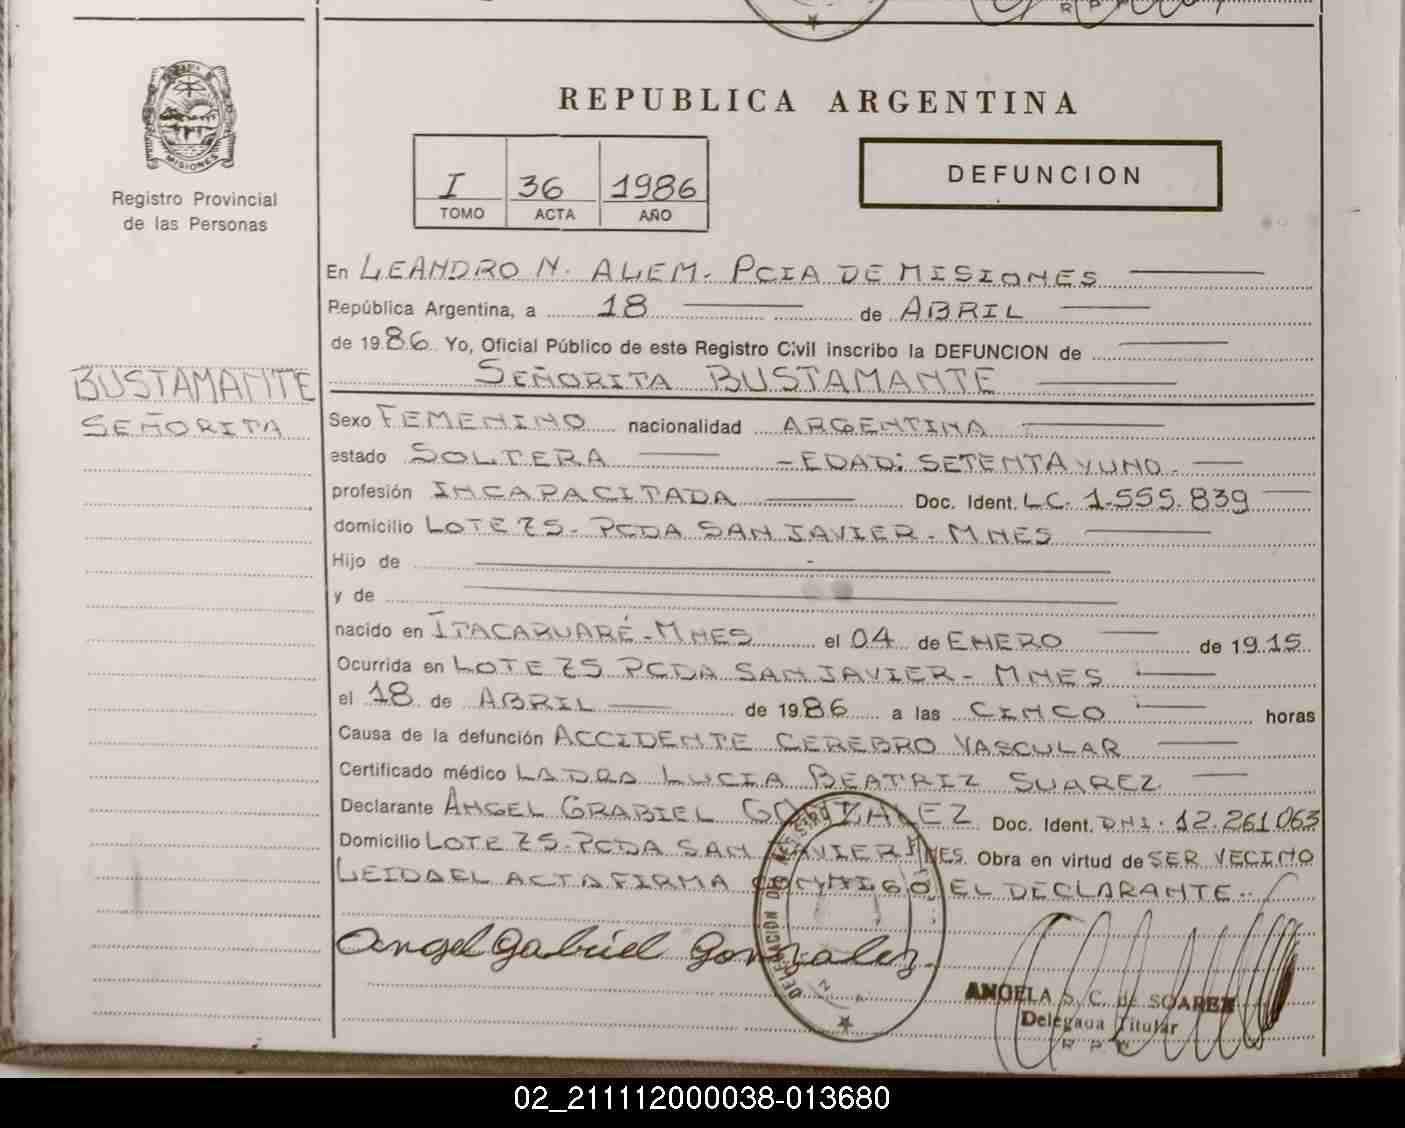 R P
REPUBLICA ARGENTINA
MISIONES
Registro Provincial
de las Personas
I 36 1986
TOMO ACTA AÑO
DEFUNCION
En LEANDRO N. ALEM. PCIA DE MISIONES
República Argentina, a 18 de ABRIL
de 1986 Yo, Oficial Público de este Registro Civil inscribo la DEFUNCION de
SEÑORITA BUSTAMANTE
BUSTAMANTE
SEÑORITA
Sexo FEMENINO nacionalidad ARGENTINA
estado SOLTERA - EDAD: SETENTA Y UNO.
profesión INCAPACITADA Doc. Ident. LC. 1.555.839
domicilio LOTE 75 - PCDA SAN JAVIER - MNES
Hijo de
y de
nacido en ITACARUARÉ - MNES el 04 de ENERO de 1915
Ocurrida en LOTE 75 PCDA SAN JAVIER - MNES
el 18 de ABRIL de 1986 a las CINCO horas
Causa de la defunción ACCIDENTE CEREBRO VASCULAR
Certificado médico LA DRA LUCIA BEATRIZ SUAREZ
Declarante ANGEL GRABIEL GONZALEZ Doc. Ident. DNI. 12.261.063
Domicilio LOTE 75 - PCDA SAN JAVIER MNES Obra en virtud de SER VECINO
LEIDA EL ACTA FIRMA CONMIGO EL DECLARANTE.
Angel Gabriel Gonzalez.
ANGELA S. C. de SOAREZ
Delegada Titular
R P
02_211112000038-013680